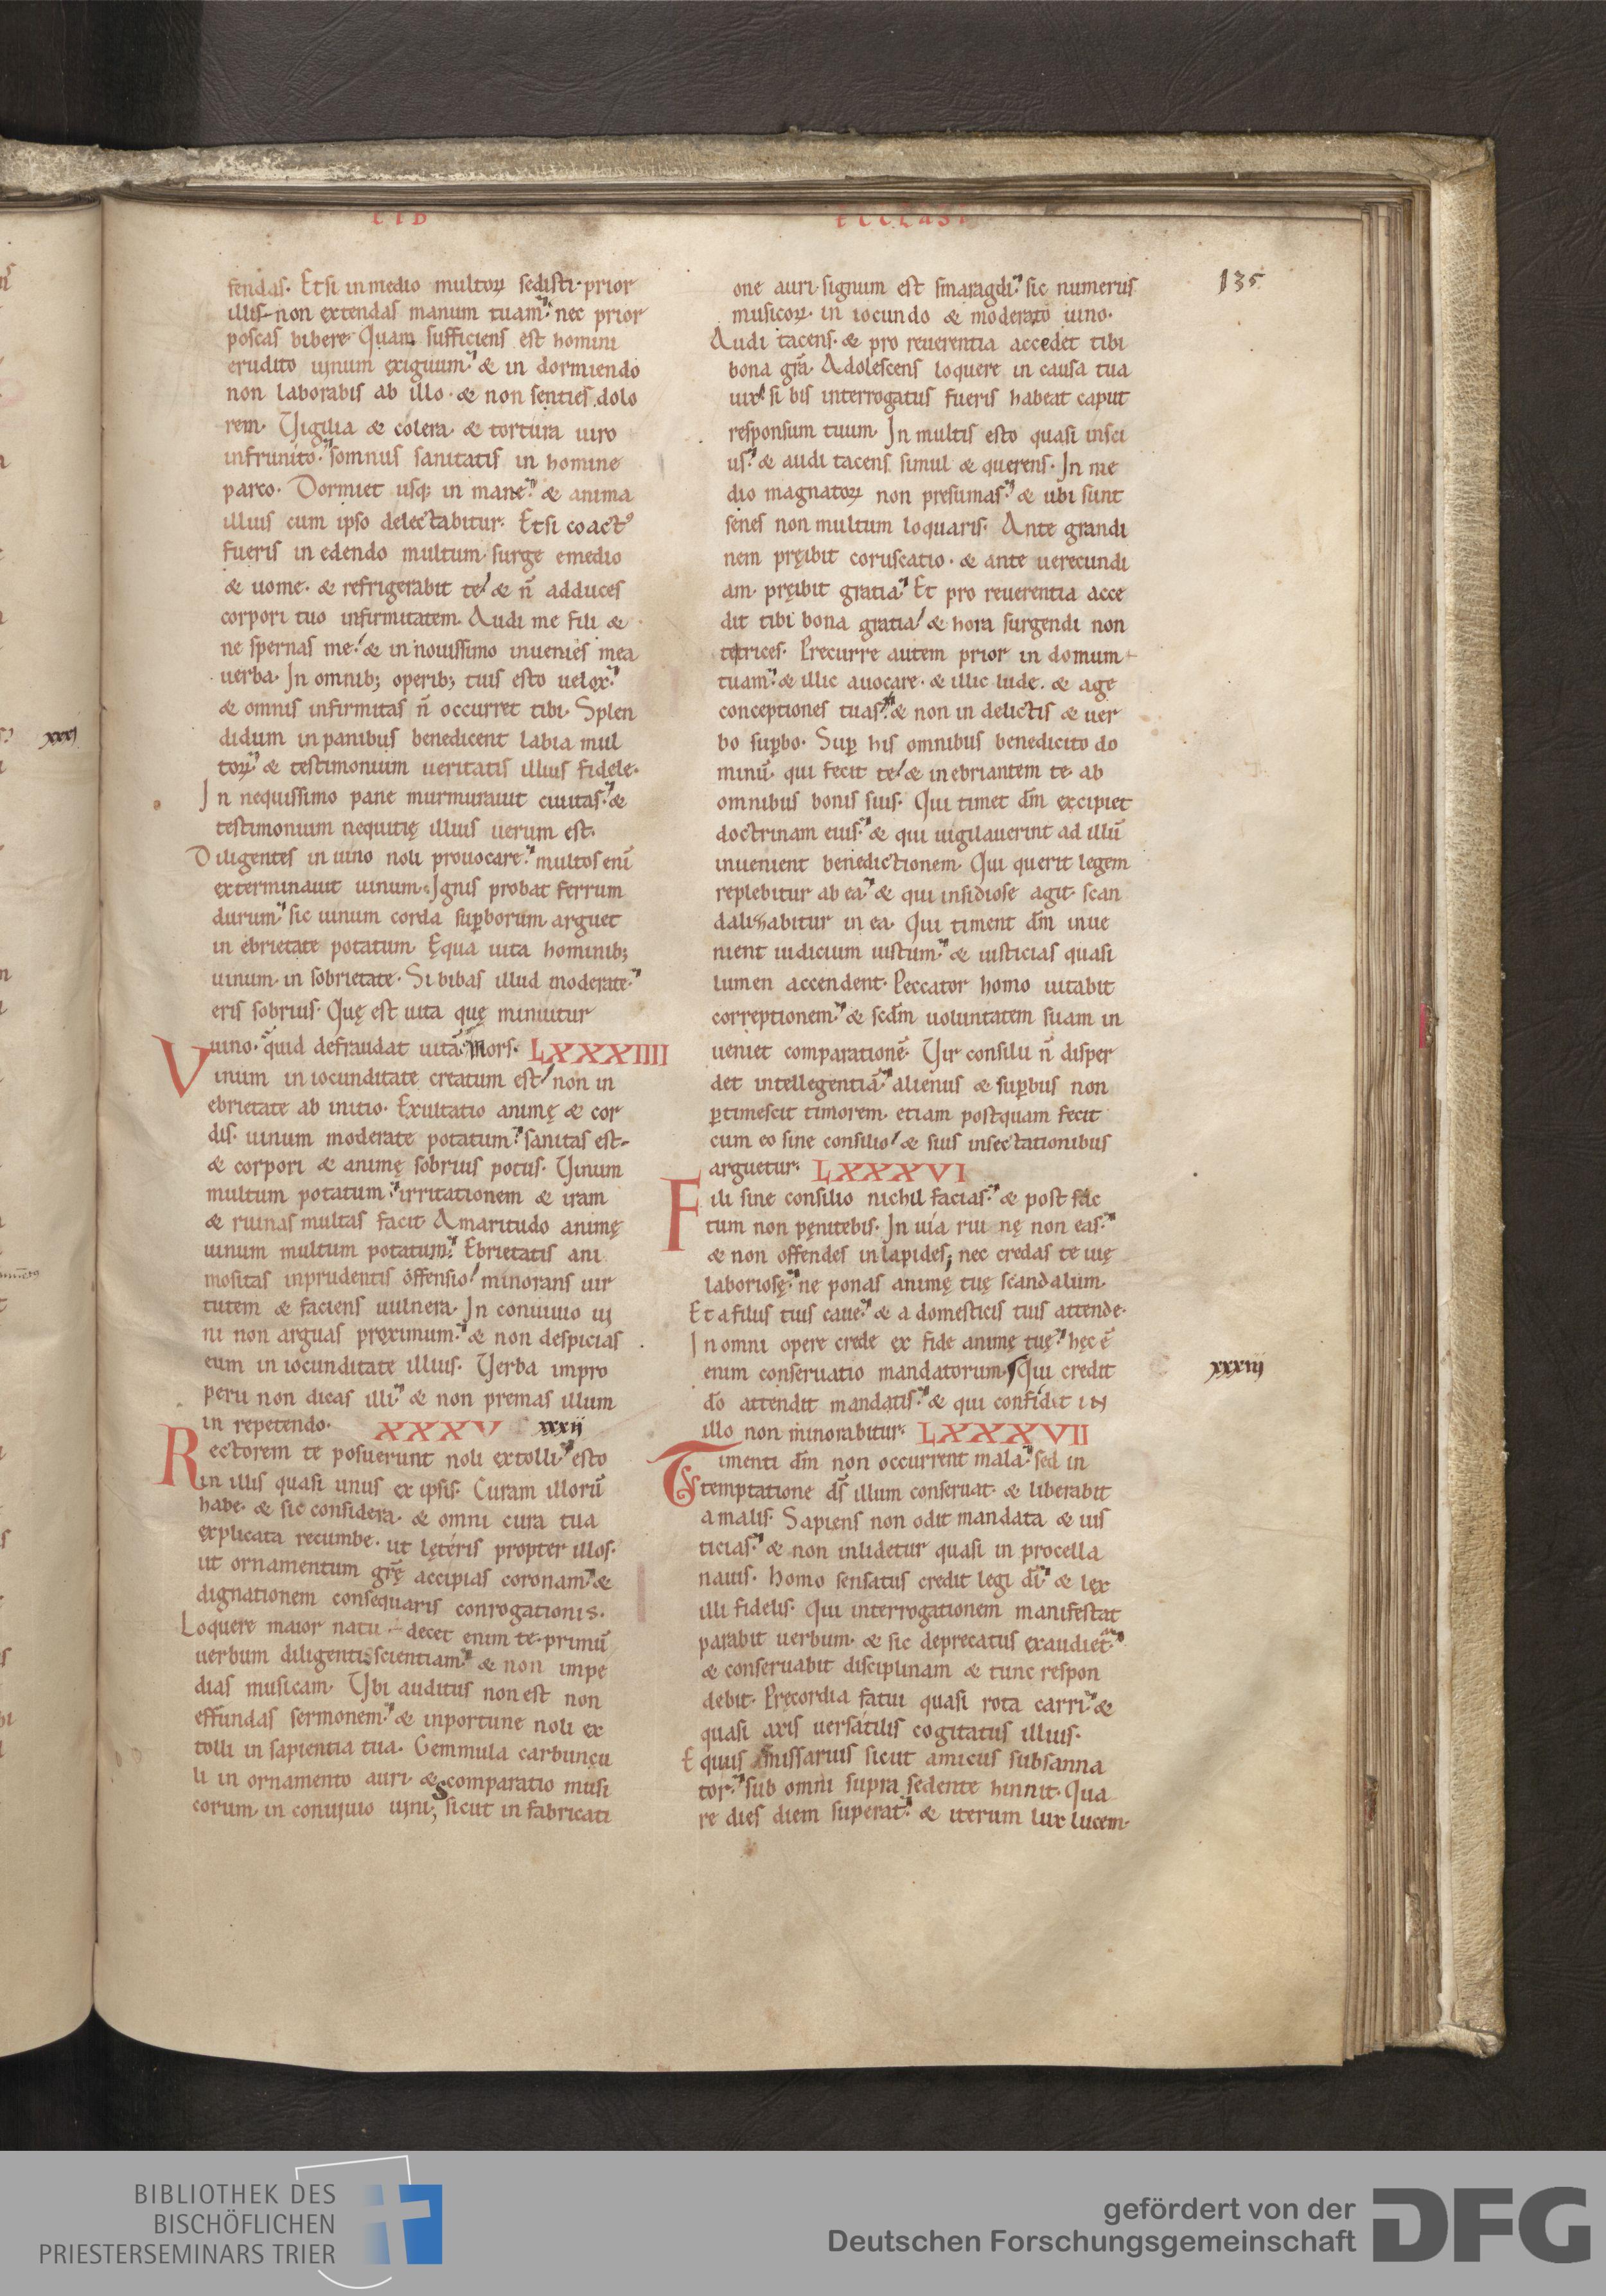 LIB
ECCLASI
135
fendas. Etsi in medio multoꝝ sedisti. prior
illis non extendas manum tuam. nec prior
poscas bibere. Quam sufficiens est homini
erudito uinum exiguum. & in dormiendo
non laborabis ab illo. & non senties dolo
rem. Vigilia & colera. & tortura uiro
infrunito. somnus sanitatis in homine
parco. Dormiet usq; in mane. & anima
illius cum ipso delectabitur. Etsi coactꝰ
fueris in edendo multum. surge emedio
& uome. & refrigerabit te. & n̄ adduces
corpori tuo infirmitatem. Audi me fili &
ne spernas me. & in nouissimo inuenies mea
uerba. In omnib; operib; tuis esto uelox.
& omnis infirmitas n̄ occurret tibi. Splen
didum in panibus benedicent labia mul
toꝝ. & testimonium ueritatis illius fidele.
In nequissimo pane murmurauit ciuitas. &
testimonium nequitię illius uerum est.
Diligentes in uino noli prouocare. multos eni̅
exterminauit uinum. Ignis probat ferrum
durum. sic uinum corda suꝑborum arguet
in ebrietate potatum. Equa uita hominib;
uinum. in sobrietate. Si bibas illud moderate.
eris sobrius. Quę est uita quę minuitur
uino. quid defraudat uitā. Mors. LXXXIIII
Vinum in iocunditate creatum est. non in
ebrietate ab initio. Exultatio animę & cor
dis. uinum moderate potatum. sanitas est.
& corpori & animę sobrius potus. Vinum
multum potatum. irritationem & iram
& ruinas multas facit. Amaritudo animę
uinum multum potatum. Ebrietatis ani
mositas inprudentis offensio. minorans uir
tutem & faciens uulnera. In conuiuio ui
ni non arguas proximum. & non despicias
eum in iocunditate illius. Verba impro
perii non dicas illi. & non premas illum
in repetendo. XXXV xxxij
Rectorem te posuerunt noli extolli. esto
in illis quasi unus ex ipsis. Curam illorū
habe. & sic considera. & omni cura tua
explicata recumbe. ut lęteris propter illos.
ut ornamentum grę̄ accipias coronam. &
dignationem consequaris conrogationis.
Loquere maior natu. decet enim te. primū
uerbum diligenti scientiam. & non impe
dias musicam. Vbi auditus non est non
effundas sermonem. & inportune noli ex
tolli in sapientia tua. Gemmula carbuncu
li in ornamento auri. & comparatio musi
corum. in conuiuio uini; Sicut in fabricati
one auri signum est smaragdi. sic numerus
musicoꝝ. in iocundo & moderato uino.
Audi tacens. & pro reuerentia accedet tibi
bona gr̄a. Adolescens loquere in causa tua
uix. si bis interrogatus fueris habeat caput
responsum tuum. In multis esto quasi insci
us. & audi tacens simul & querens. In me
dio magnatoꝝ non presumas. & ubi sunt
senes non multum loquaris. Ante grandi
nem pręibit coruscatio. & ante uerecundi
am. pręibit gratia. Et pro reuerentia acce
dit tibi bona gratia. & hora surgendi non
tetrices. Precurre autem prior in domum
tuam. & illic auocare. & illic lude. & age
conceptiones tuas. & non in delictis & uer
bo suꝑbo. Suꝑ his omnibus benedicito do
minū. qui fecit te. & inebriantem te. ab
omnibus bonis suis. Qui timet dm̄ excipiet
doctrinam eius. & qui uigilauerint ad illū
inuenient benedictionem. Qui querit legem
replebitur ab ea. & qui insidiose agit. scan
dalizabitur in ea. Qui timent dm̄ inue
nient iudicium iustum. & iusticias quasi
lumen accendent. Peccator homo uitabit
correptionem. & scd̄m uoluntatem suam in
ueniet comparationē. Vir consilii n̄ disper
det intellegentiā. alienus & suꝑbus non
ꝑtimescit timorem. etiam postquam fecit
cum eo sine consilio. & suis insectationibus
arguetur. LXXXVI
Fili sine consilio nichil facias. & post fac
tum non pęnitebis. In uia rui nę non eas.
& non offendes in lapides; nec credas te uię
laboriosę. ne ponas animę tuę scandalum.
Et a filiis tuis caue. & a domesticis tuis attende.
In omni opere crede ex fide animę tuę. hęc ē
enim conseruatio mandatorum. Qui credit
xxxiij
dō attendit mandatis. & qui confidit in
illo non minorabitur. LXXXVII
Timenti dm̄ non occurrent mala. sed in
temptatione ds̄ illum conseruat. & liberabit
a malis. Sapiens non odit mandata & ius
ticias. & non inlidetur quasi in procella
nauis. Homo sensatus credit legi dī. & lex
illi fidelis. Qui interrogationem manifestat
parabit uerbum. & sic deprecatus exaudiet.
& conseruabit disciplinam & tunc respon
debit. Precordia fatui quasi rota carri. &
quasi axis uersatilis cogitatus illius.
Equus emissarius sicut amicus subsanna
tor. sub omni supra sedente hinnit. Qua
re dies diem superat. & iterum lux lucem.
xxxj
BIBLIOTHEK DES
BISCHÖFLICHEN
PRIESTERSEMINARS TRIER
gefördert von der
Deutschen Forschungsgemeinschaft
DFG